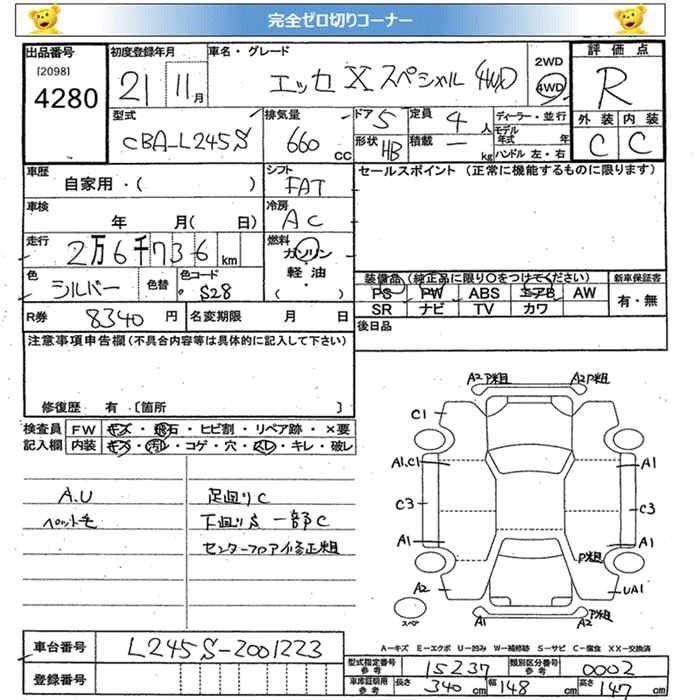 完全ゼロ切りコーナー
出品番号
[2098]
4280
初度登録年月
21 11月
車名・グレード
エッセ X スペシャル 4WD
2WD
4WD
評価点
R
型式
CBA-L245S
排気量
660 cc
ドア 5
定員 4人
形状 HB
積載 — kg
ディーラー・並行
モデル年式 年
ハンドル 左・右
外装 内装
C C
車歴
自家用・( )
シフト
FAT
セールスポイント (正常に機能するものに限ります)
車検
年 月( 日)
冷房
AC
走行
2万6千736 km
燃料
ガソリン
軽油
( )
色
シルバー
色替
色コード
S28
装備品 (純正品に限り○をつけてください)
PS PW ABS エアB AW
SR ナビ TV カワ
新車保証書
有・無
R券 8340 円
名変期限 月 日
後日品
注意事項申告欄(不具合内容等は具体的に記入して下さい)
修復歴 有 [箇所 ]
検査員記入欄
FW キズ・飛石・ヒビ割・リペア跡・×要
内装 キズ・汚れ・コゲ・穴・スレ・キレ・破レ
A.U
ペット毛
足回りC
下回りS 一部C
センターフロア修正粗
A2 P粗
A2P粗
C1
A1.C1
A1
C3
C3
A1
A1
P粗
A2
UA1
スペア
A1
A2
P粗
A-キズ E-エクボ U-凹み W-補修跡 S-サビ C-腐食 XX-交換済
車台番号
L245S-2001223
登録番号
型式指定番号
参考
15237
類別区分番号
参考
0002
車庫証明用
参考
長さ 340 cm
幅 148 cm
高さ 147 cm